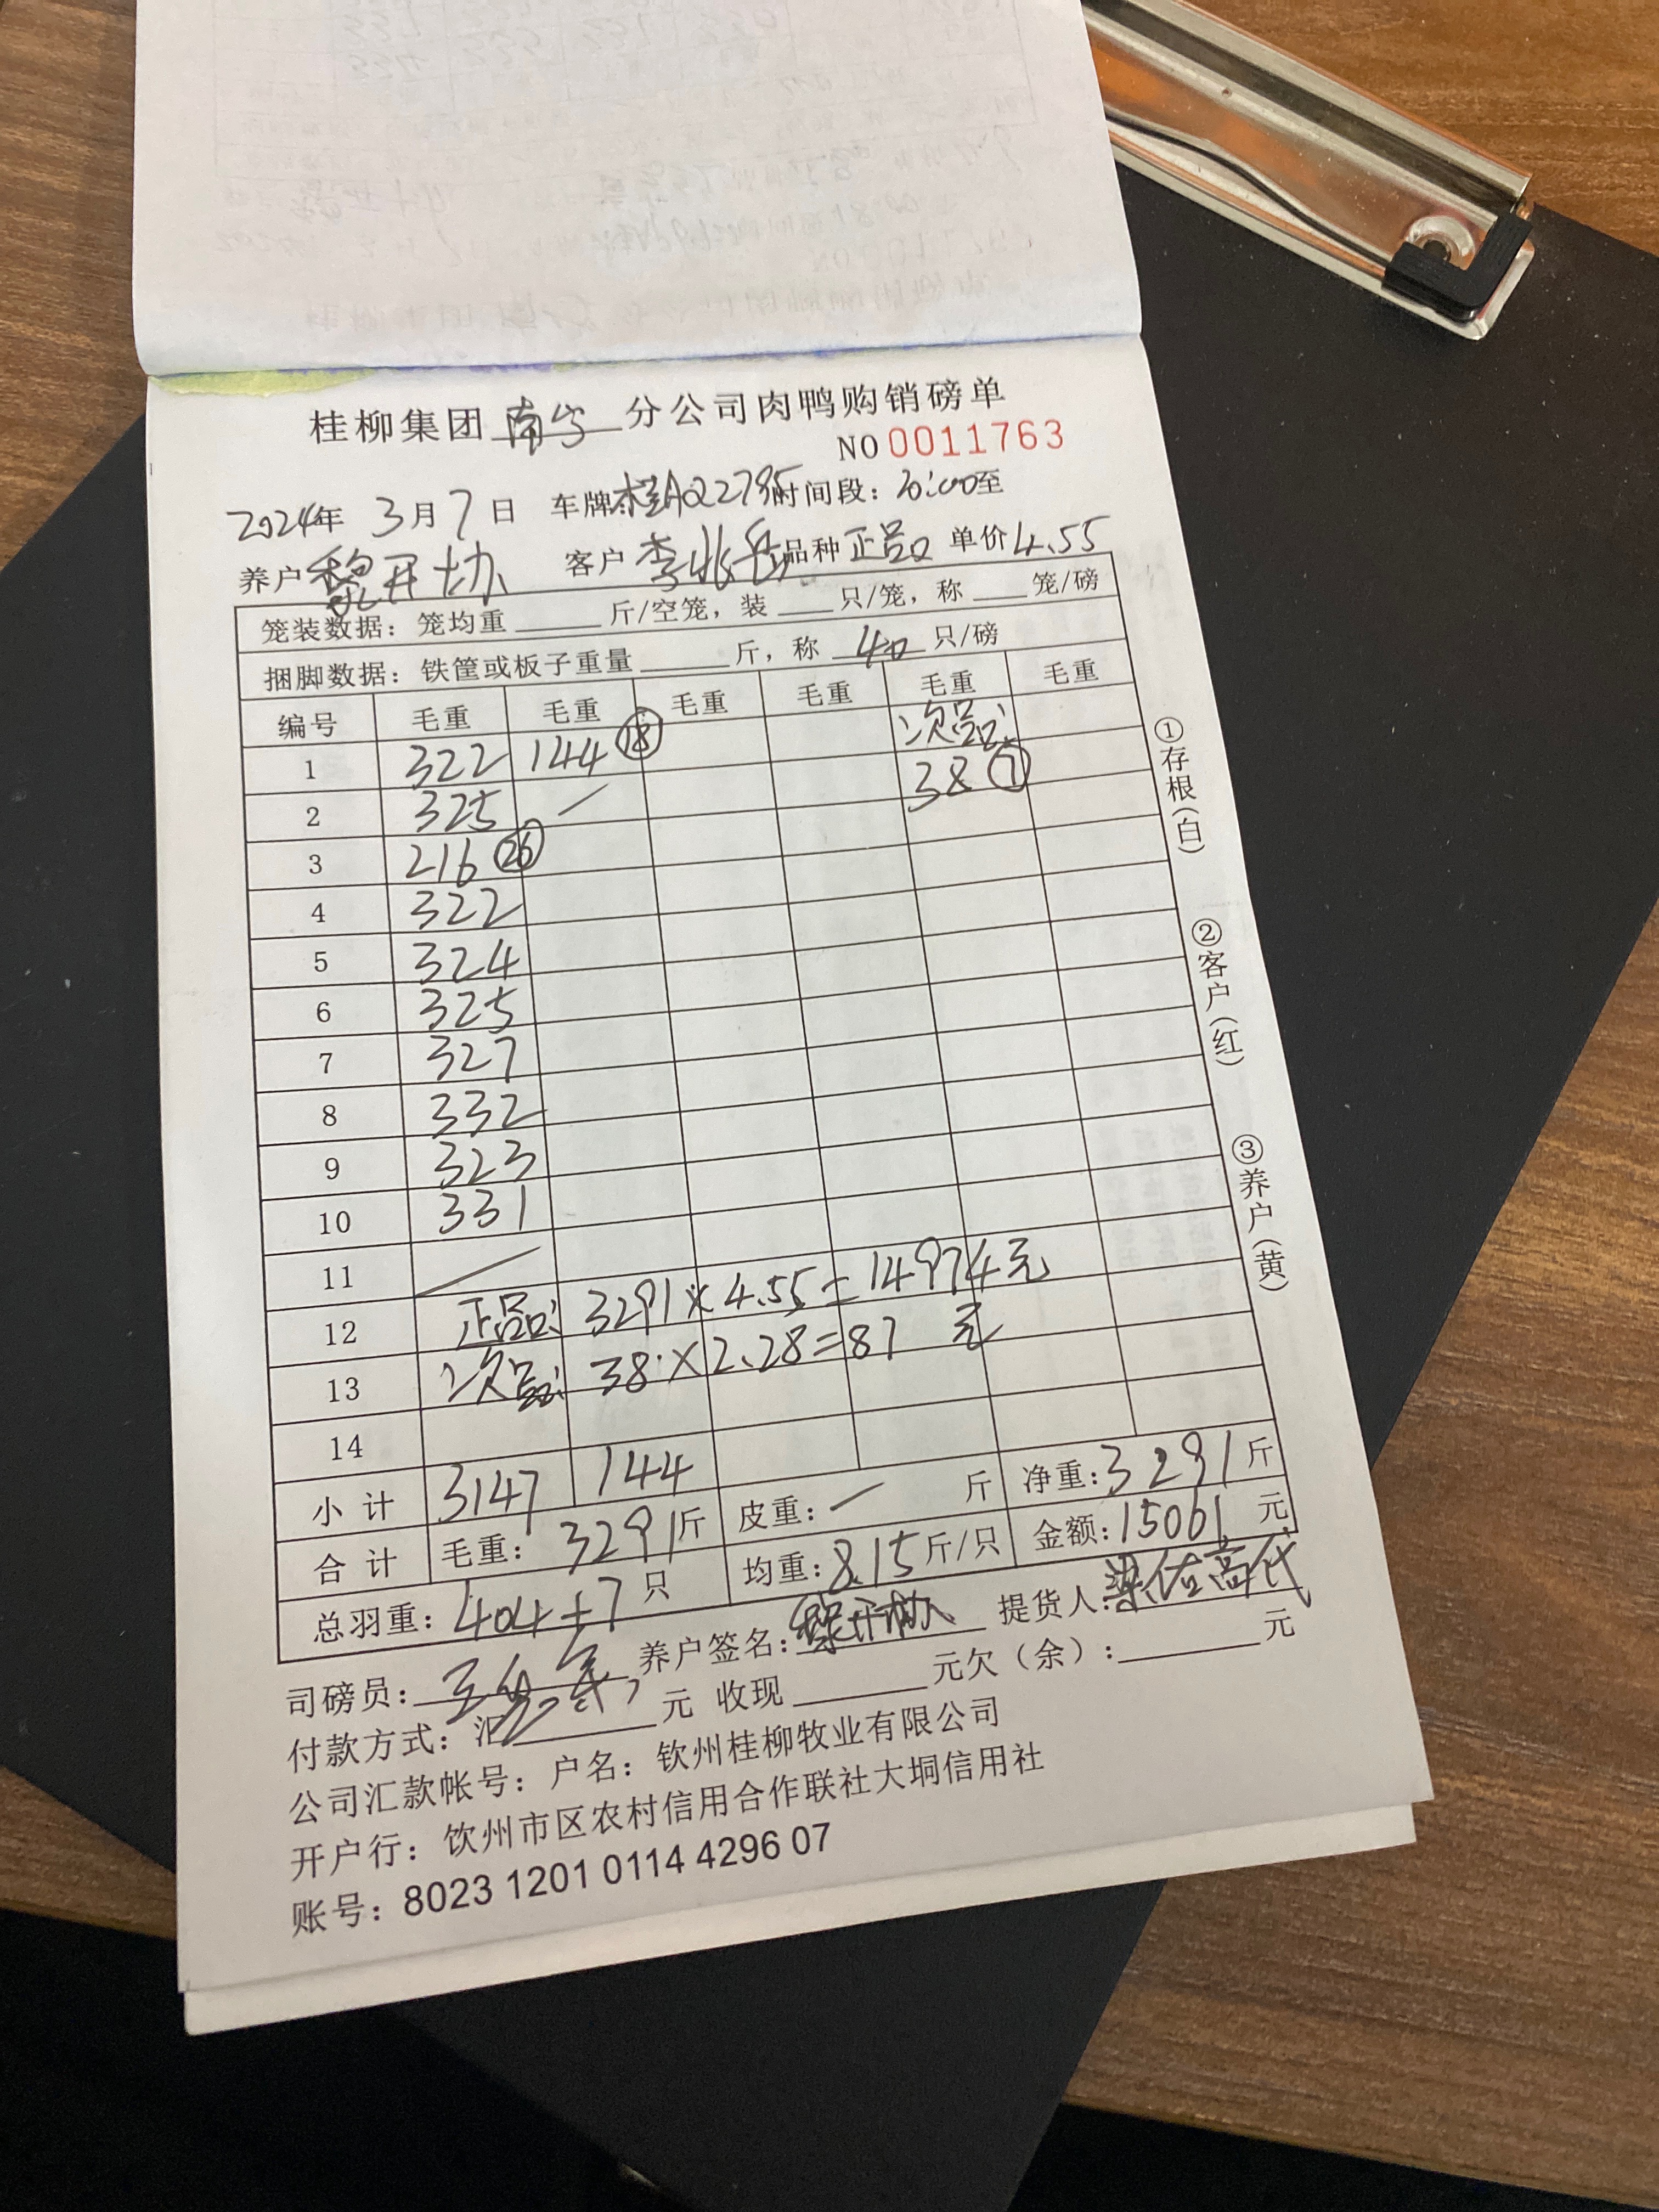 桂柳集团南宁分公司肉鸭购销磅单
NO 0011763
2024年 3月7日 车牌:桂AQ2795时间段: 20:00至
养户黎开协 客户李兆岳品种正品 单价4.55
笼装数据: 笼均重____斤/空笼, 装____只/笼, 称____笼/磅
捆脚数据: 铁筐或板子重量____斤, 称 40 只/磅
编号 毛重 毛重 毛重 毛重 毛重 毛重
次品:
1 322 144 ⑱ 38 ⑦
2 325 /
3 216 ㉖
4 322
5 324
6 325
7 327
8 332
9 323
10 331
11 /
12 正品: 3291×4.55=14974元
13 次品: 38×2.28=87 元
14
小计 3147 144 皮重: / 斤 净重: 3291斤
合计 毛重: 3291斤 均重: 8.15斤/只 金额: 15061 元
总羽重: 404+7 只
司磅员: 养户签名: 黎开协 提货人:
付款方式: 汇____元 收现____元欠(余):____元
公司汇款帐号: 户名: 钦州桂柳牧业有限公司
开户行: 饮州市区农村信用合作联社大垌信用社
账号: 8023 1201 0114 4296 07
①存根(白)
②客户(红)
③养户(黄)